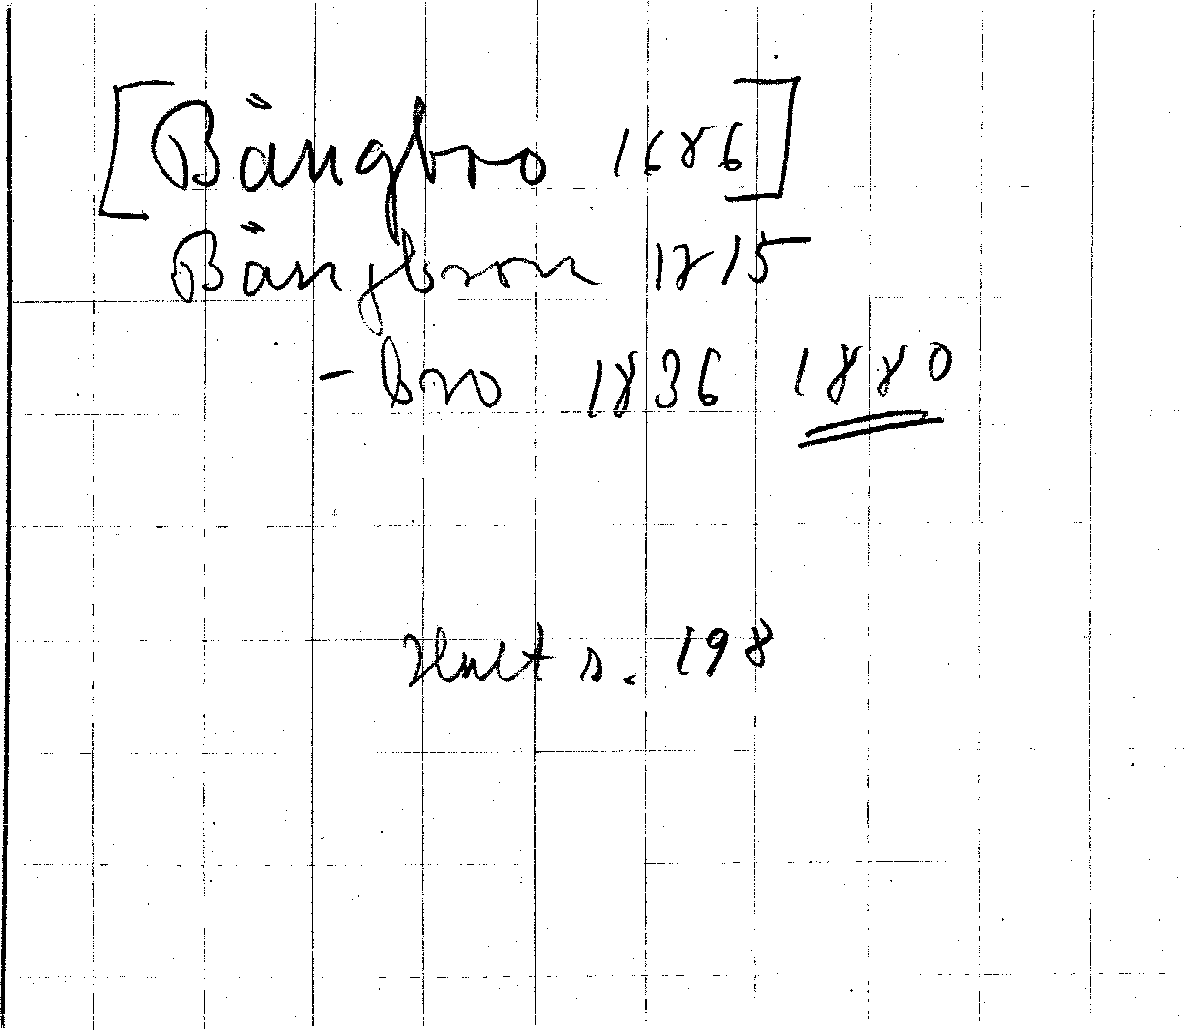 [Bängbro 1686]
Bängbron 1715
- bro 1836 1880
Hult s. 198